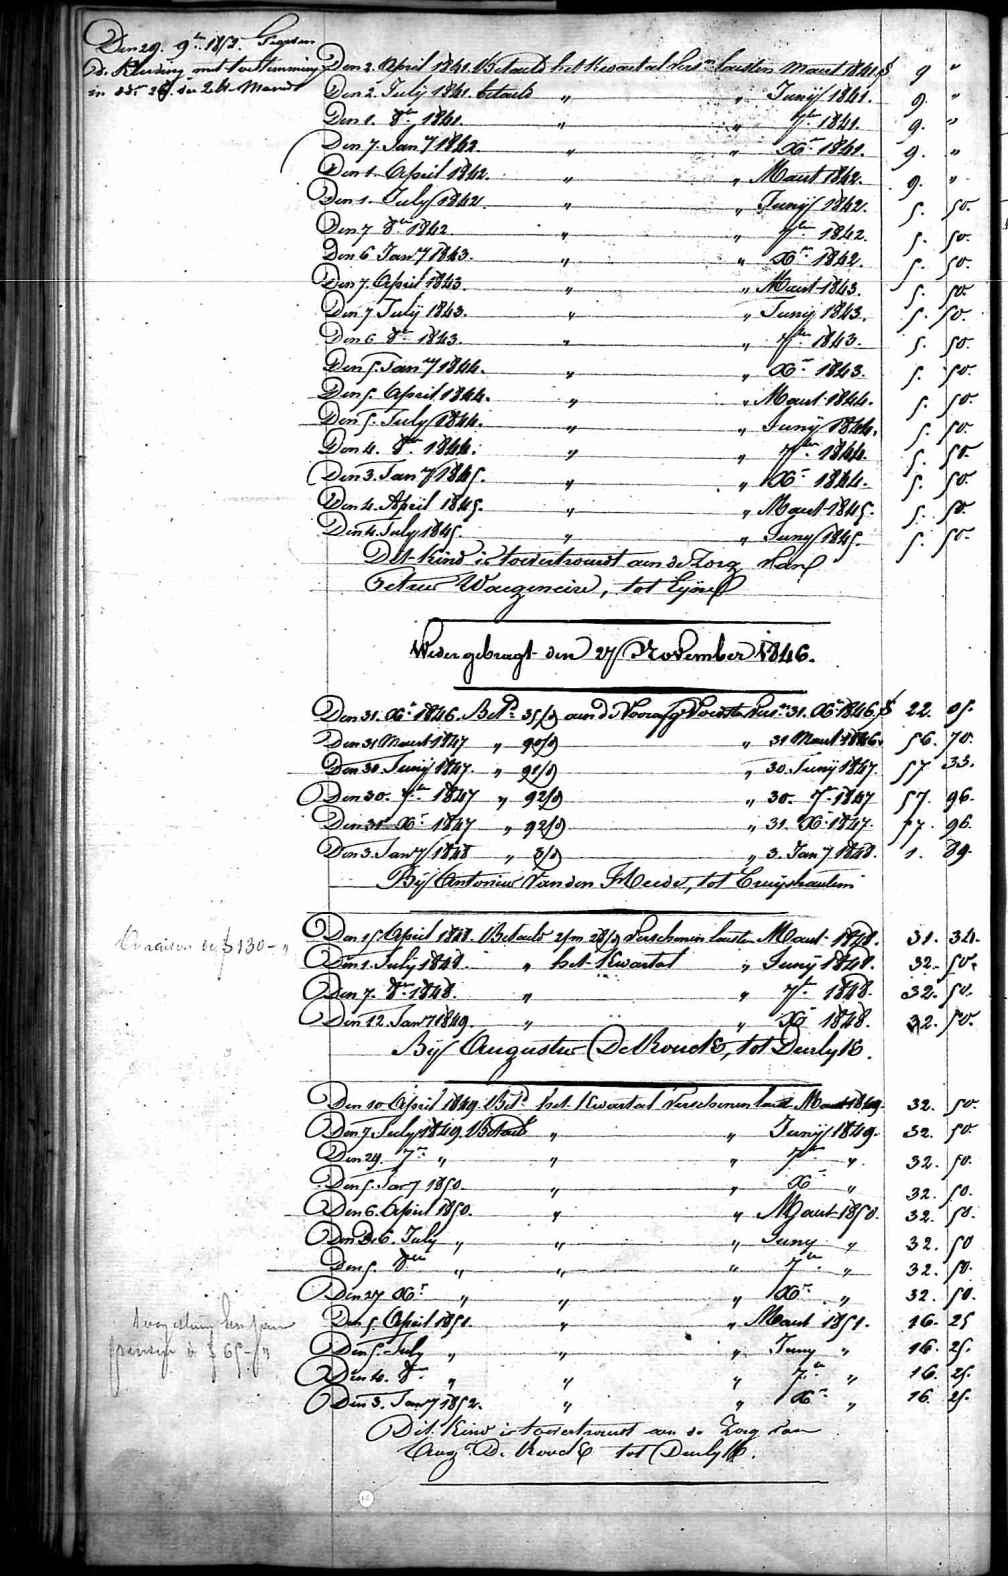 Den 29. 9bre 1851.
de Kleeding met toestemming
in
Den 2. April 1841. Betaeld het Kwartael Vers.n laesten Maert 1841. 9 "
Den 2. July 1841. betaeld " " Junij 1841. 9. "
Den 1. 8bre 1841. " " 7bre 1841. 9. "
Den 7. Jany 1842. " " Xbre 1841. 9. "
Den 1. April 1842. " " Maert 1842. 9. "
Den 1. July 1842. " " Junij 1842. 5. 50.
Den 7 8bre 1842. " " 7bre 1842. 5. 50.
Den 6 Jany 1843. " " Xbre 1842. 5. 50.
Den 7. April 1843. " " Maert 1843. 5. 50.
Den 7 July 1843. " " Junij 1843. 5. 50.
Den 6 8bre 1843. " " 7bre 1843. 5. 50.
Den 5. Jany 1844. " " Xbre 1843. 5. 50.
Den 5. April 1844. " " Maert 1844. 5. 50.
Den 5. July 1844. " " Junij 1844. 5. 50.
Den 4. 8bre 1844. " " 7bre 1844. 5. 50.
Den 3. Jany 1845. " " Xbre 1844. 5. 50.
Den 4. April 1845. " " Maert 1845. 5. 50.
Den 4. July 1845. " " Juny 1845. 5. 50.
Dit Kind is toevertrouwt aen de Zorg van
Wedergebragt den 27 November 1846.
Den 31. Xbre 1846. Bet.d 35/d aen d'Voorzorg 31. Xbre 1846. 22. 05.
Den 31 Maert 1847 " 90/d " 31 Maert 1846. 56. 70.
Den 30. Junij 1847. " 91/d " 30. Junij 1847. 57 33.
Den 30. 7bre 1847 " 92/d " 30. 7bre 1847 57. 96.
Den 31 Xbre 1847 " 92/d " 31. Xbre 1847. 57. 96.
Den 3. Jany 1848 " 3/d " 3. Jany 1848. 1. 89.
Bij Antonius Van den Heede, tot Cruyshautem
130 - "
Den 15 April 1848. Betaeld 2/m 28/d Verschenen laesten Maert 1848. 31. 34.
Den 1. July 1848. " het Kwartael " Junij 1848. 32. 50.
Den 7. 8bre 1848. " " 7bre 1848. 32. 50.
Den 12. Jany 1849. " " Xbre 1848. 32. 50.
Bij Augustus De Kouck, tot Deurlyk.
Den 10. April 1849. Bet.d het Kwartael Verschenen laest Maert 1849. 32. 50.
Den 7 July 1849. Betaeld " " Junij 1849. 32. 50.
Den 29. 7bre " " " 7bre " 32. 50.
Den 5. Jany 1850. " " Xbre " 32. 50.
Den 6. April 1850. " " Maert 1850. 32. 50.
Den 6. July " " " Juny " 32. 50
Den 5. 8bre " " " 7bre " 32. 50.
Den 27 Xbre " " " Xbre " 32. 50.
Den 5. April 1851. " " Maert 1851. 16. 25
Den 5. July " " " Juny " 16. 25.
65 - "
Den 4. 8bre " " " 7bre " 16. 25.
Den 3. Jany 1852. " " Xbre " 16. 25.
Dit Kind is toevertrouwt aen de Zorg van
Aug.s De Kouck tot Deurlyk.